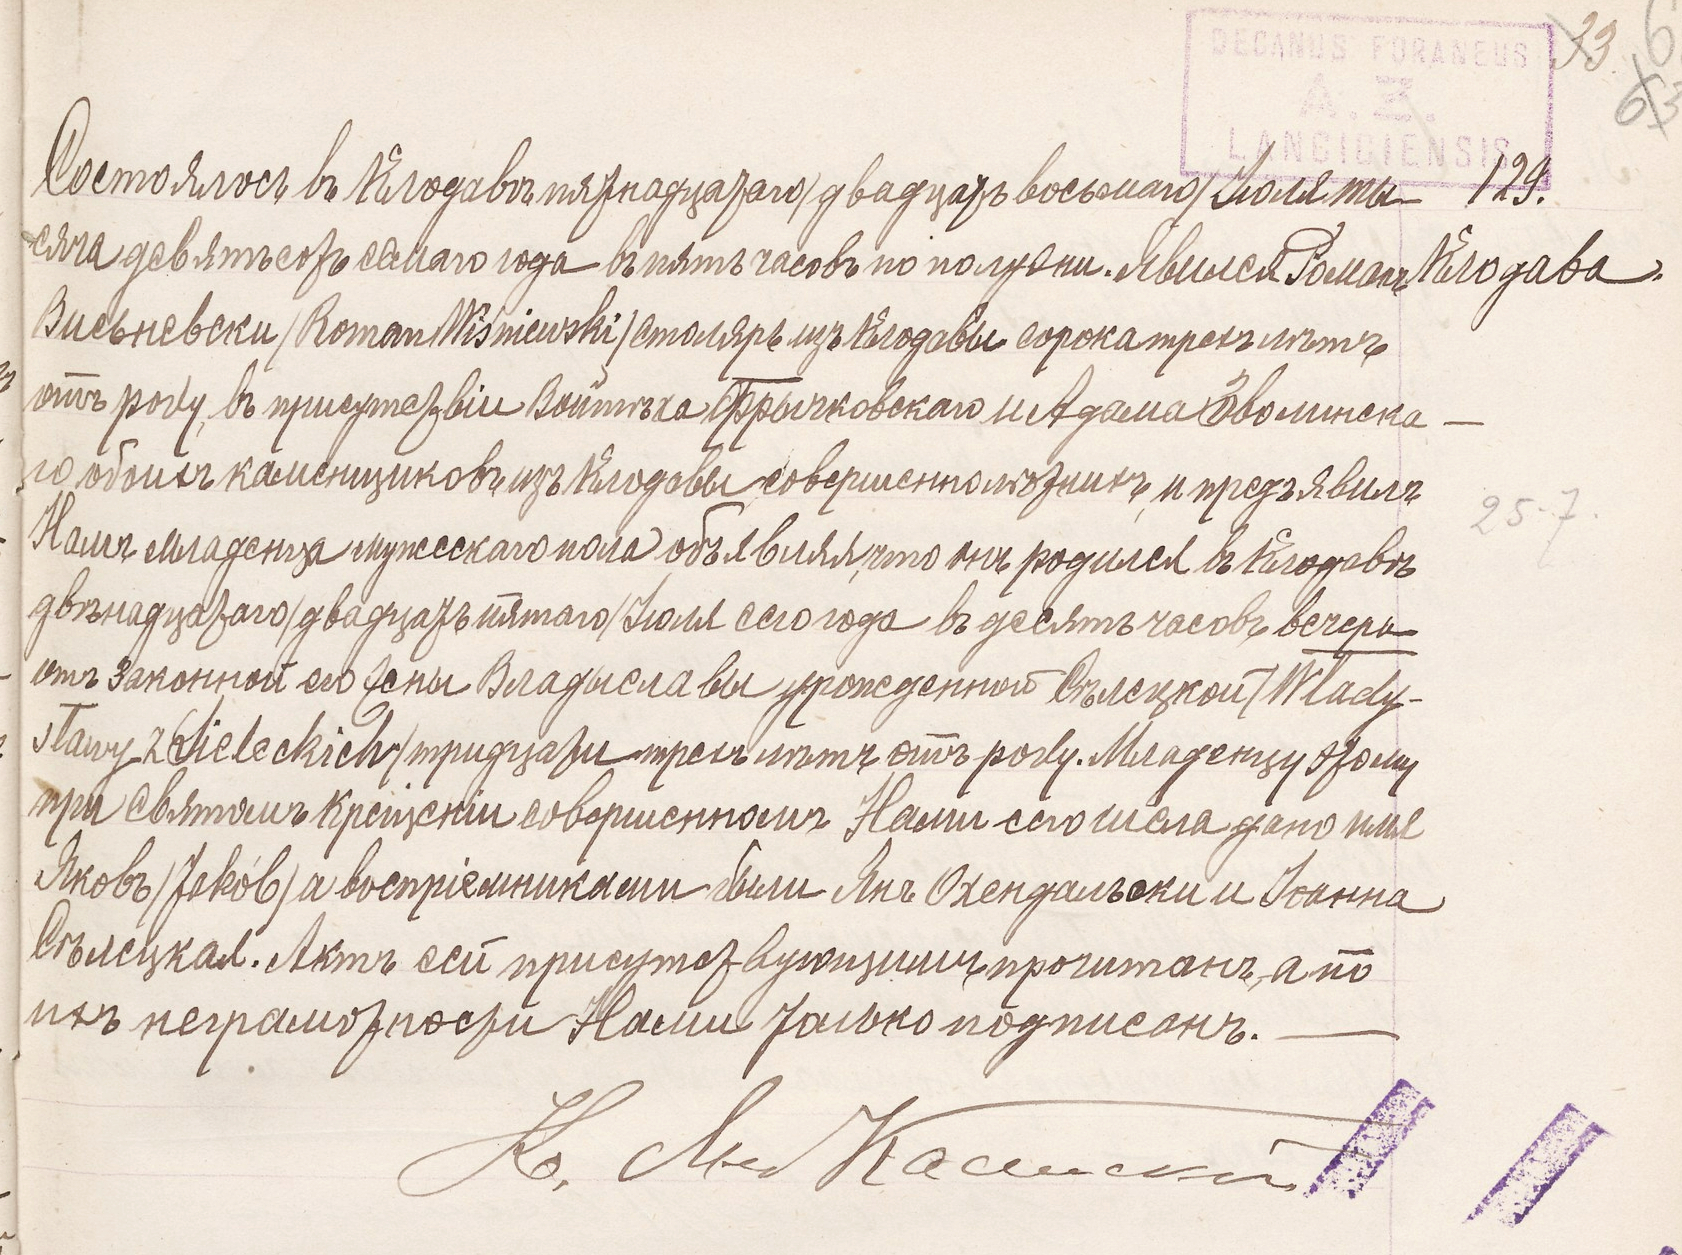 DECANUS FORANEUS
LANCICIENSIS
33
63
Состоялось въ Клодавѣ пятнадцатаго /двадцать восьмаго/ Іюля ты- 129.
сяча девятьсотъ седмаго года въ пять часовъ по полудни. Явился Романъ Клодава.
Висьневски /Roman Wiśniewski/ столяръ изъ Клодавы сорока трехъ лѣтъ
отъ роду, въ присутствіи Войтѣха Грычковскаго и Адама Зволинска-
го обоихъ каменщиковъ изъ Клодавы совершеннолѣтнихъ, и предъявилъ
Намъ младенца мужескаго пола объявляя, что онъ родился въ Клодавѣ
25-7.
двѣнадцатаго /двадцать пятаго/ Іюля сего года въ десять часовъ вечера
отъ законной его жены Владыславы урожденной Сѣлецкой /Włady-
sławy z Sieleckich/ тридцати трехъ лѣтъ отъ роду. Младенцу этому
при Святомъ Крещеніи совершенномъ Нами сего числа дано имя
Яковъ /Jakób/ а воспріемниками были Янъ Охендальски и Іоанна
Сѣлецкая. Актъ сей присутствующимъ прочитанъ, а по
ихъ неграмотности Нами только подписанъ.
К.